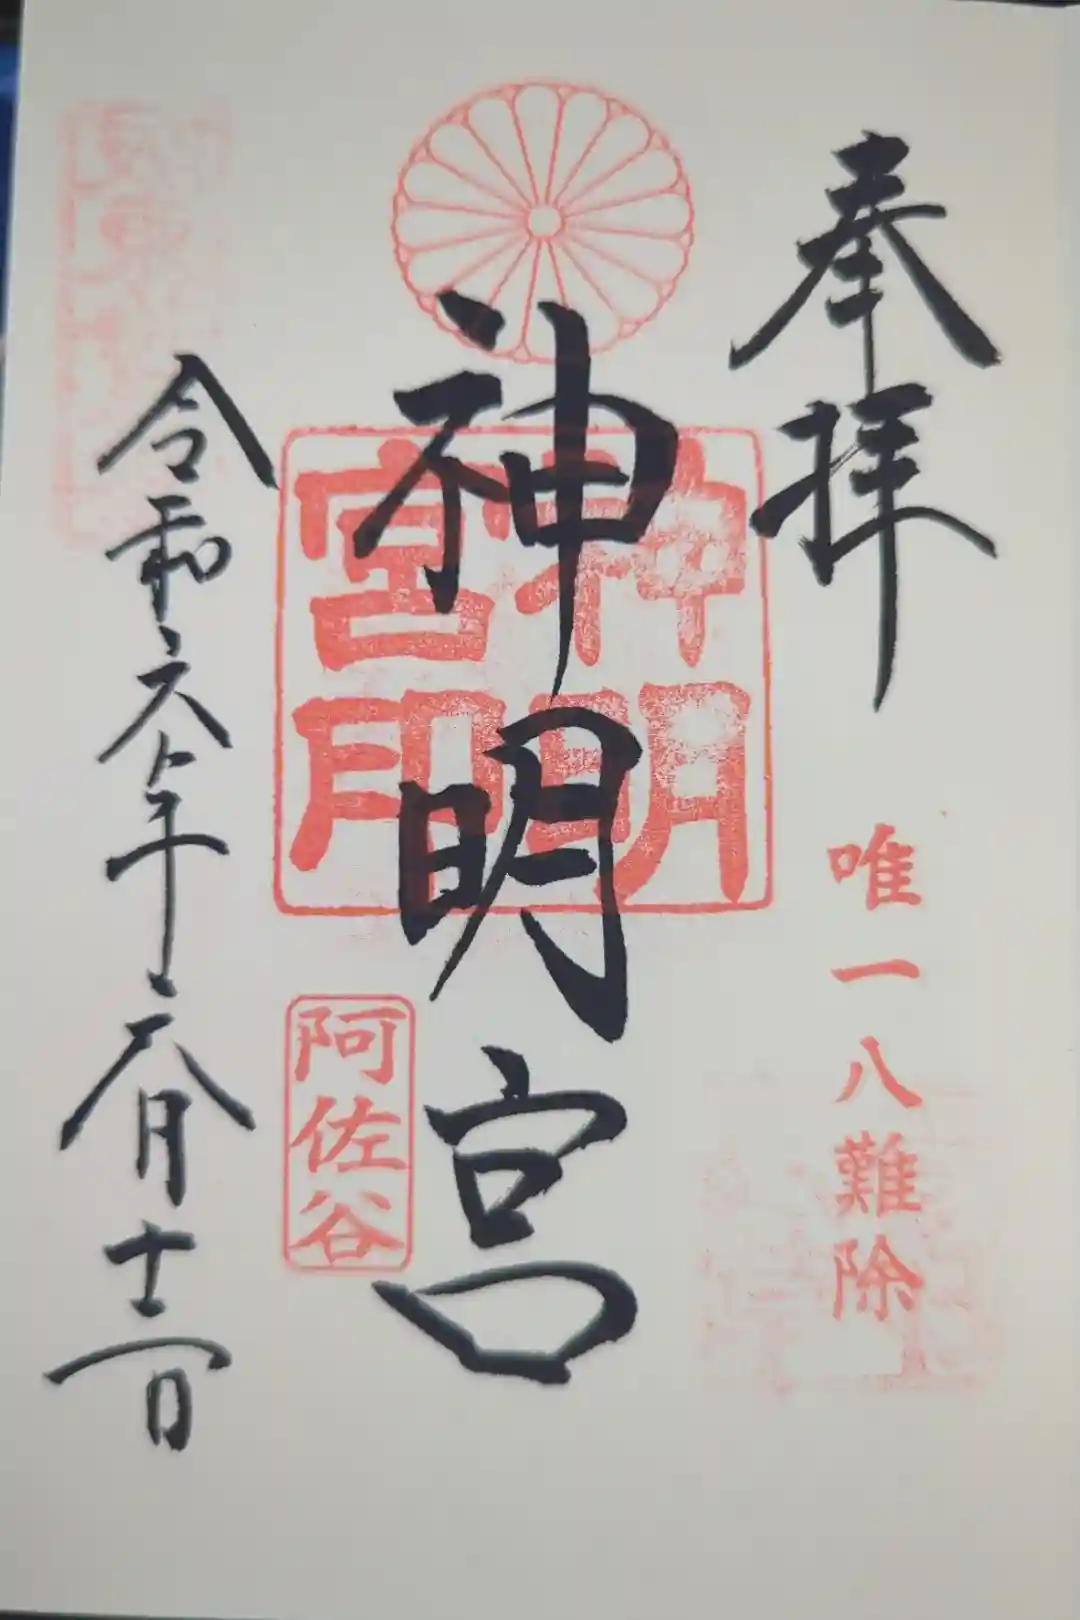 奉拝
唯一八難除
神明宮
神明
宮印
阿佐谷
令和六年六月十二日